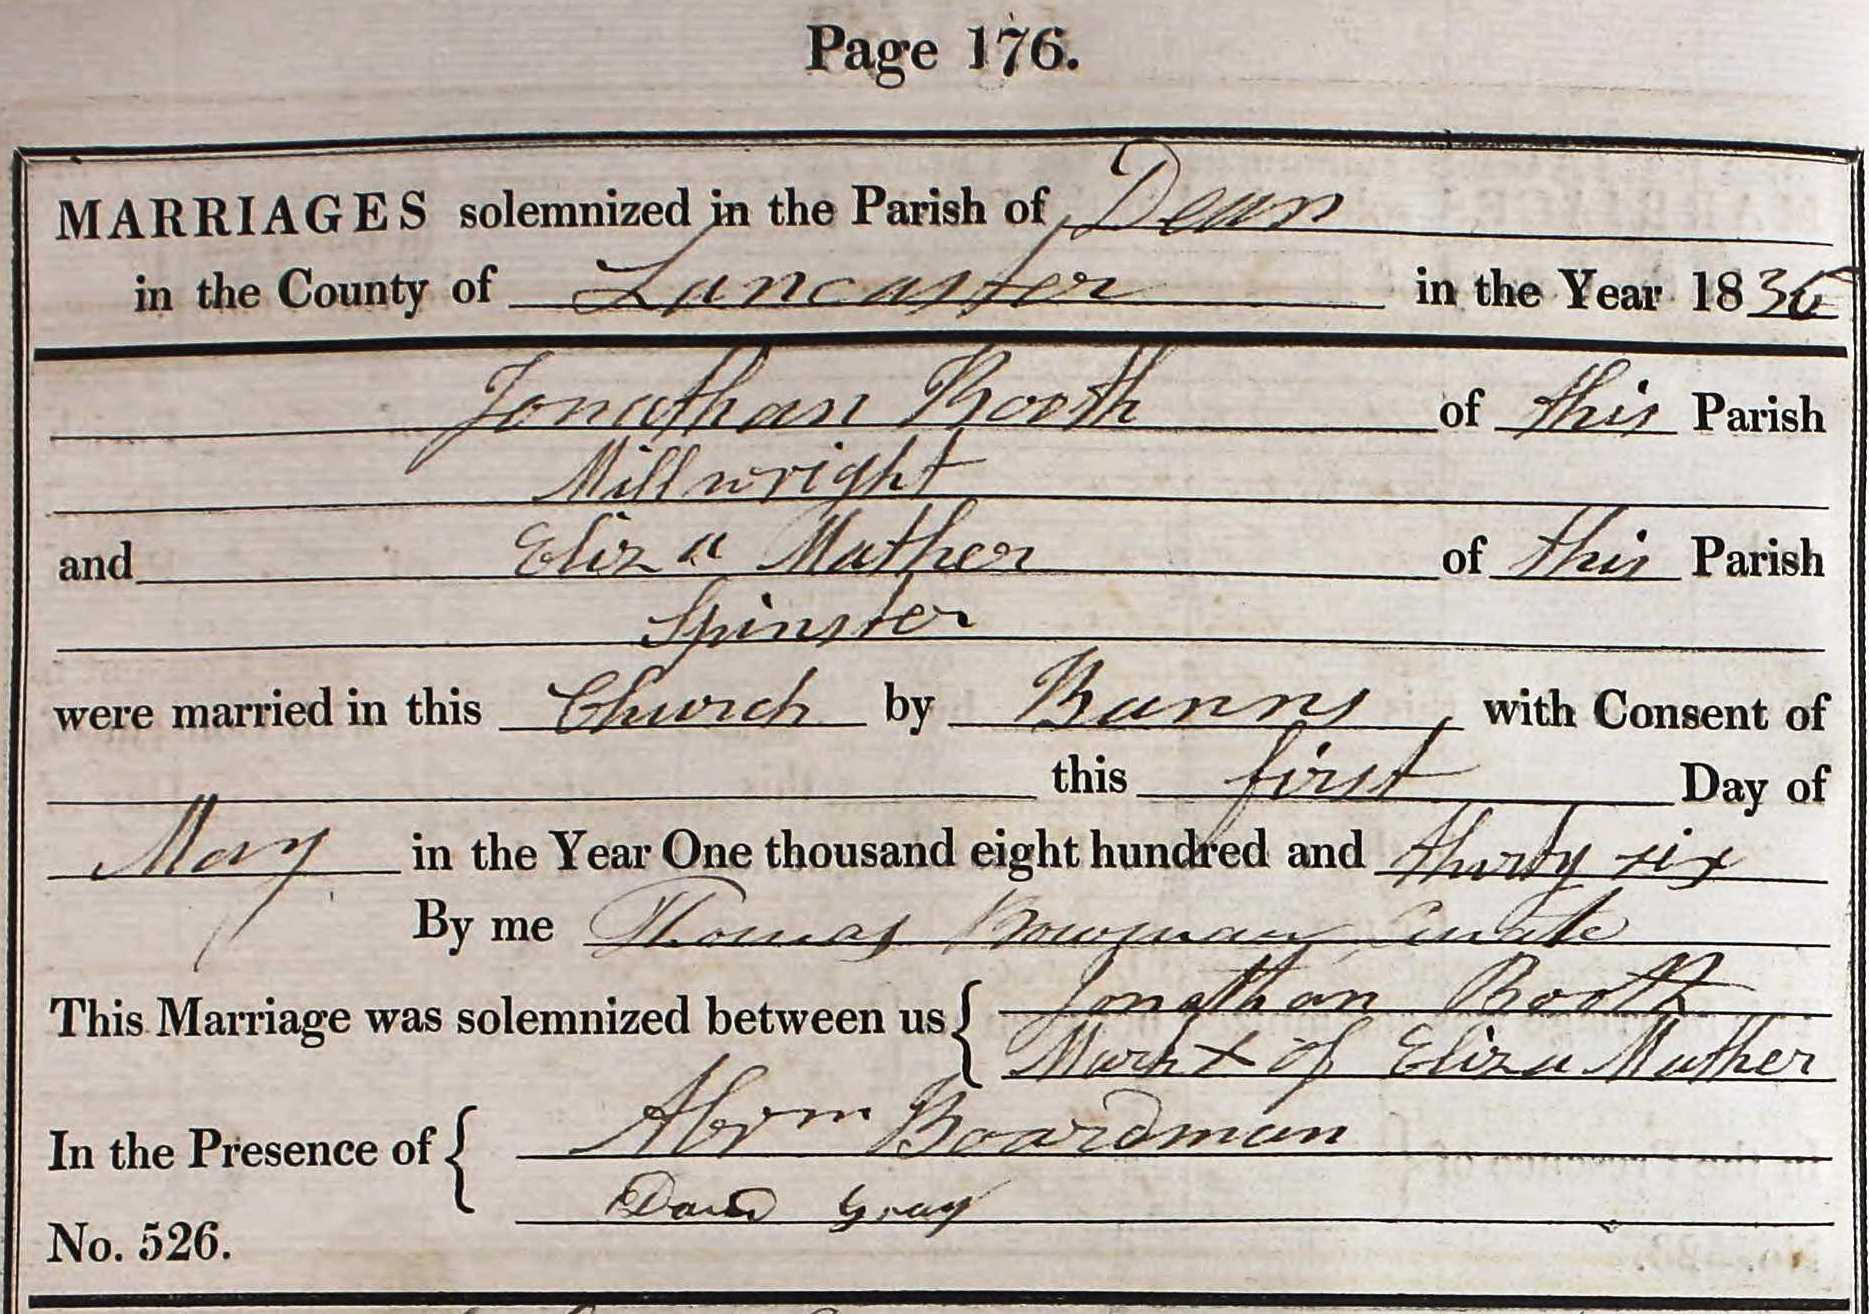 Page 176.
MARRIAGES solemnized in the Parish of Dean
in the County of Lancaster in the Year 1836
Jonathan Booth of this Parish
Millwright
and Eliza Mather of this Parish
Spinster
were married in this Church by Banns with Consent of
this first Day of
May in the Year One thousand eight hundred and thirty six
By me Thomas Bowman Curate
This Marriage was solemnized between us { Jonathan Booth
Mark X of Eliza Mather
In the Presence of { Abrm Boardman
David Gray
No. 526.